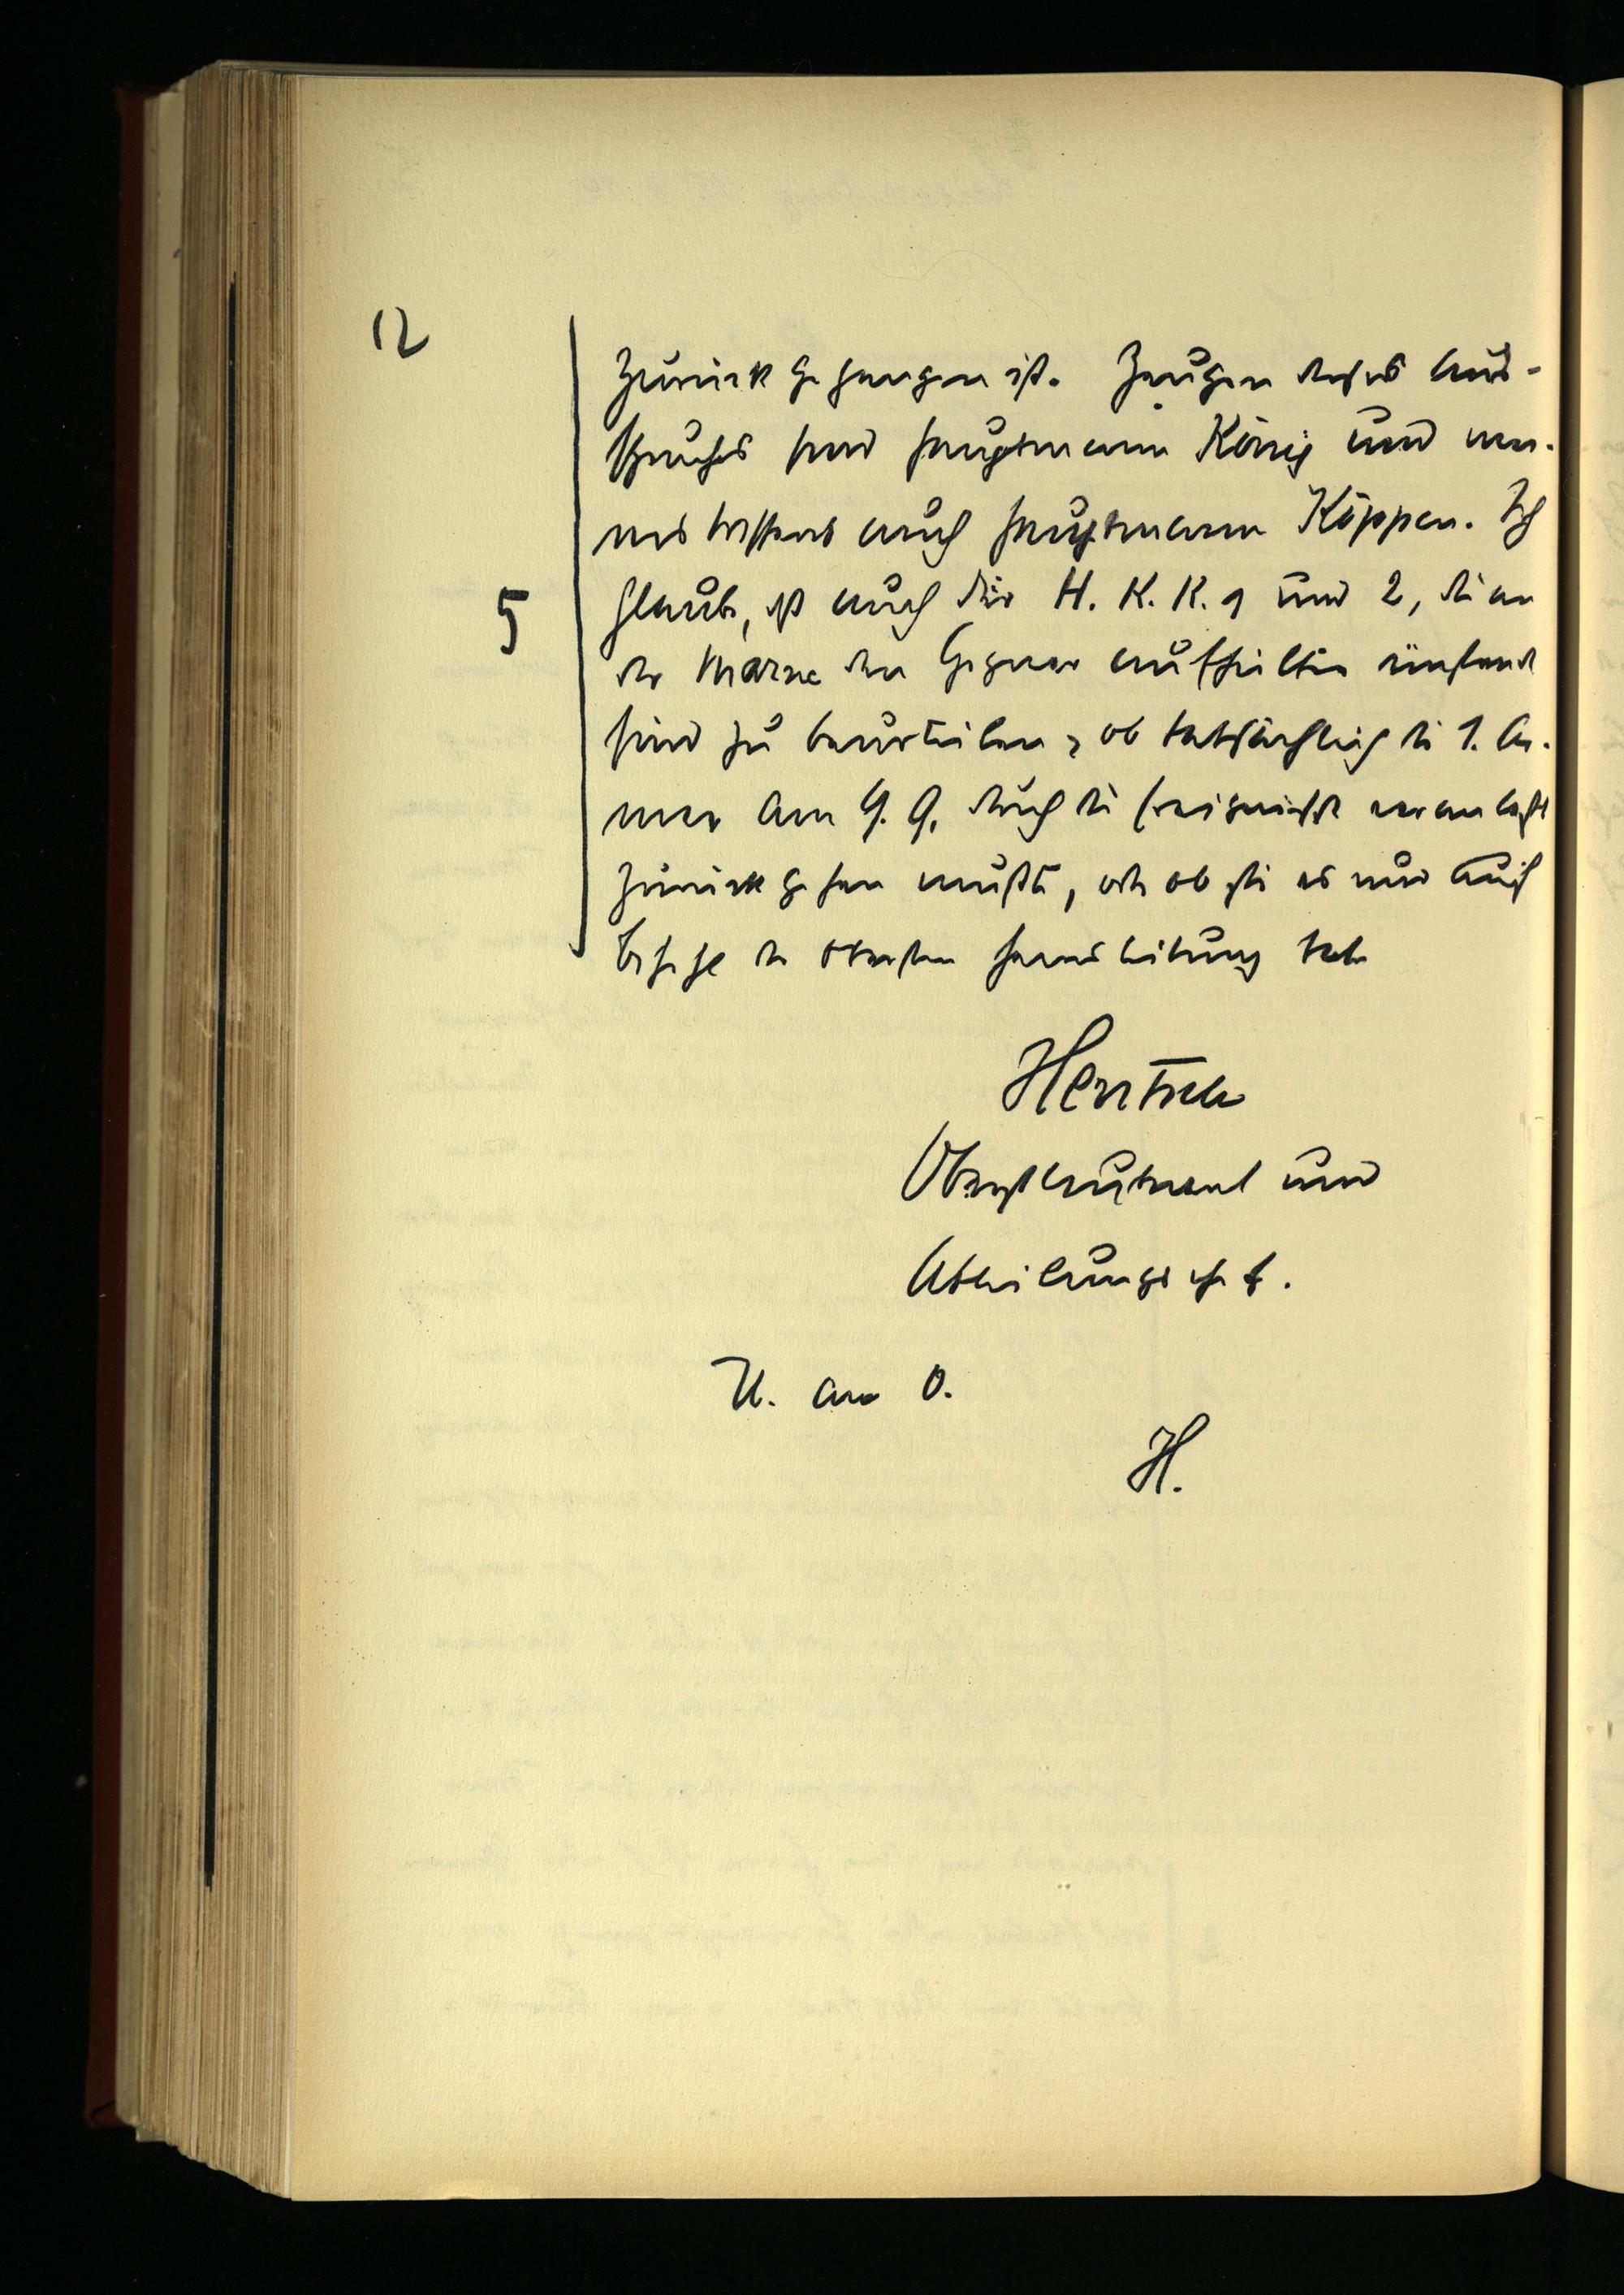 12
zurückgegangen ist. Zeugen dieses Aus-
spruches sind Hauptmann König und mei-
nes Wissens auch Hauptmann Köppen. Ich
5
glaube, ist auch die H. K. K. 1 und 2, die an
der Marne den Gegner aufhielten
sind zu beurteilen, ob tatsächlich die 1. Ar-
mee am 9. 9. durch die Ereignisse veranlaßt
zurückgehen mußte, oder ob sie es nur auf
Befehl der obersten Heeresleitung tat
Hentsch
Oberstleutnant und
Abteilungschef.
U. an O.
H.